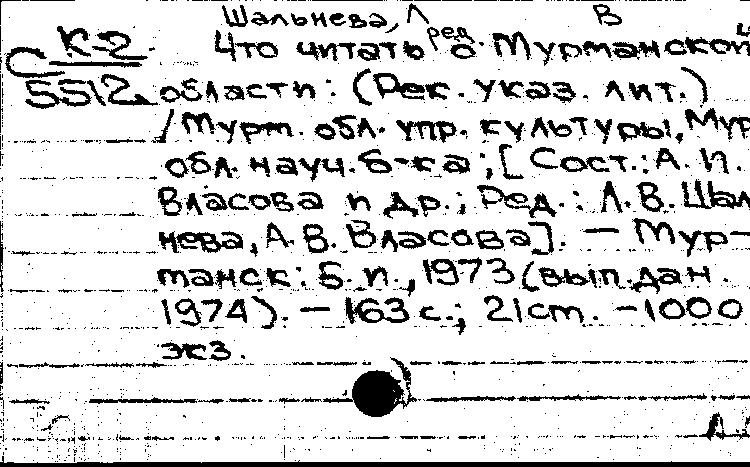 Шальнева, Л В
ред.
К-2 Что читать о Мурманской
С 5512 области: (Рек. указ. лит.)
/ Мурм. обл. упр. культуры, Мур
обл. науч. б-ка; [Сост.: А. И.
Власова и др.; Ред.: Л. В. Шаль
нева, А. В. Власова]. — Мур-
манск: Б. и., 1973 (вып. дан.
1974). — 163 с.; 21 cm. - 1000
экз.